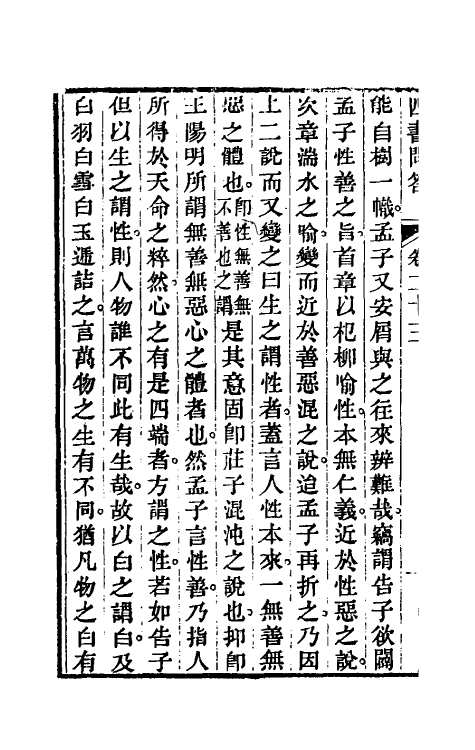 四書問答 卷二十三
能自樹一幟。孟子又安屑與之往來辨難哉。竊謂告子欲闢
孟子性善之旨。首章以杞柳喻性。本無仁義。近於性惡之說。
次章湍水之喻。變而近於善惡混之說。迨孟子再折之。乃因
上二說而又變之曰生之謂性者。蓋言人性本來一無善無
惡之體也。即性無善無不善也之謂是其意固即莊子混沌之說也。抑即
王陽明所謂無善無惡心之體者也。然孟子言性善。乃指人
所得於天命之粹然。心之有是四端者。方謂之性。若如告子
但以生之謂性。則人物誰不同此有生哉。故以白之謂白。及
白羽白雪白玉遞詰之。言萬物之生有不同。猶凡物之白有